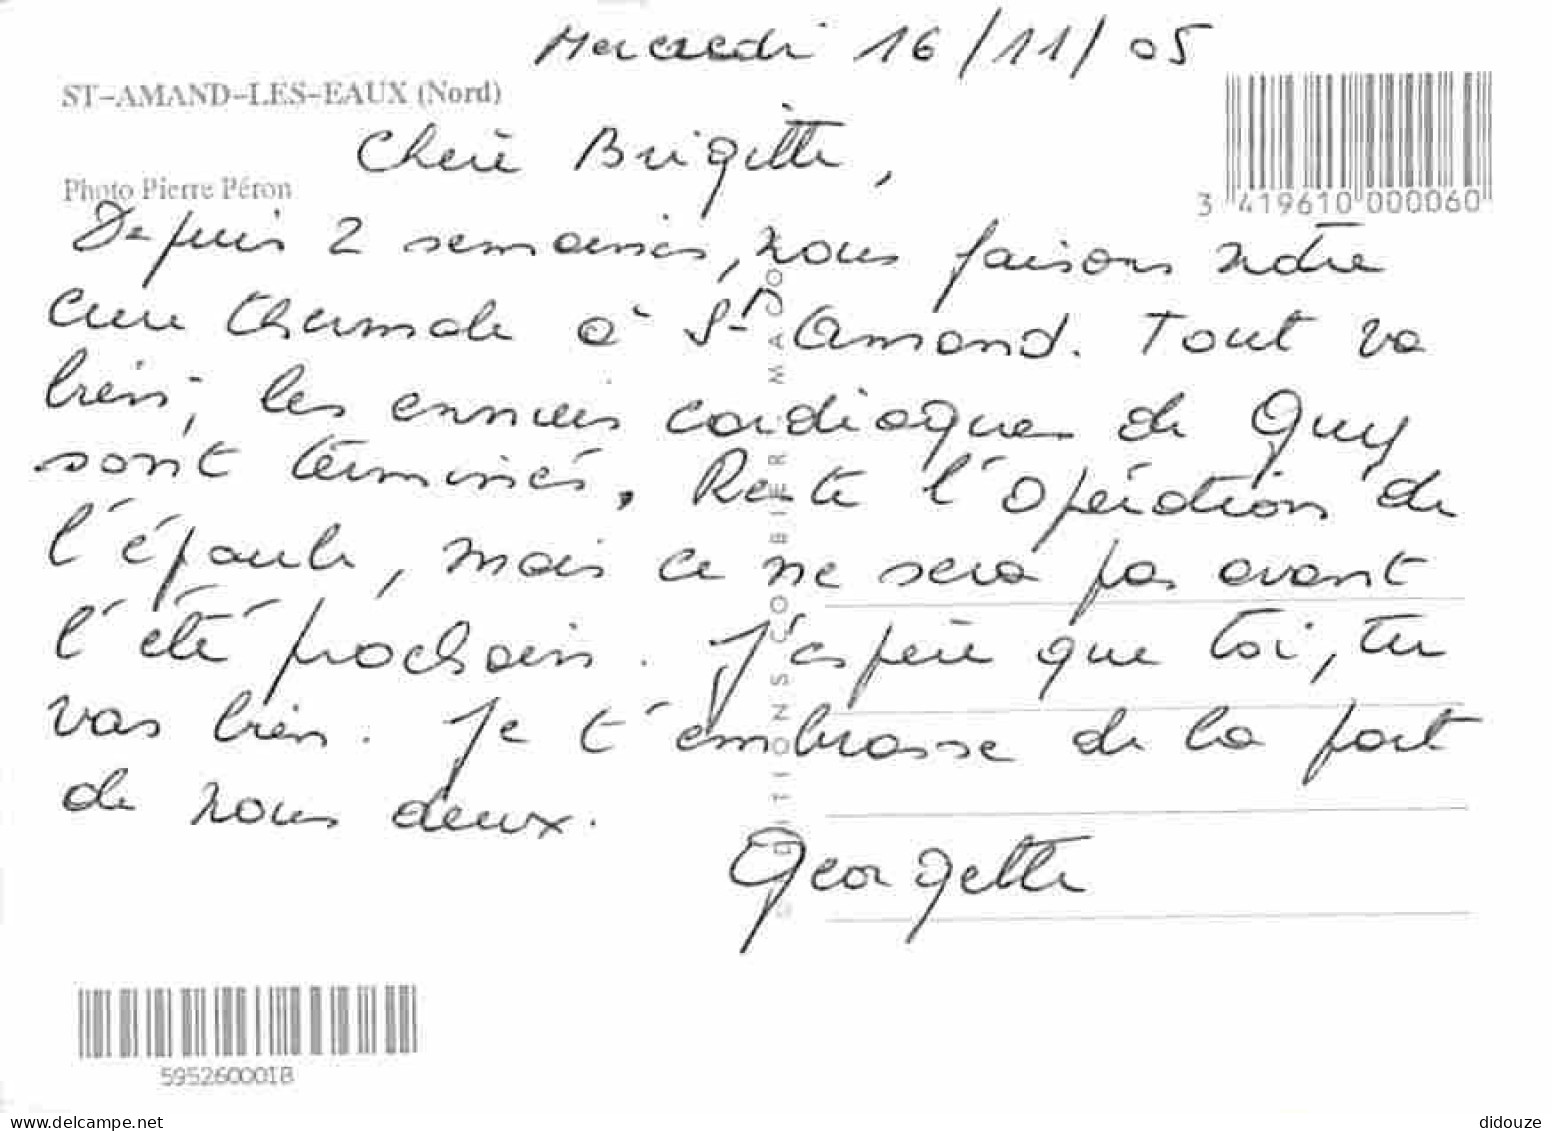 Mercredi 16/11/05
ST-AMAND-LES-EAUX (Nord)
Chère Brigitte,
Photo Pierre Péron
3 419610 000060
Depuis 2 semaines, nous faisons notre
cure thermale à St Amand. Tout va
bien, les ennuis cardiaques de Guy
sont terminés. Reste l'opération de
l'épaule, mais ce ne sera pas avant
l'été prochain. J'espère que toi, tu
vas bien. Je t'embrasse de la part
de nous deux.
Georgette
EDITIONS COMBIER MACON
5952600018
www.delcampe.net
didouze